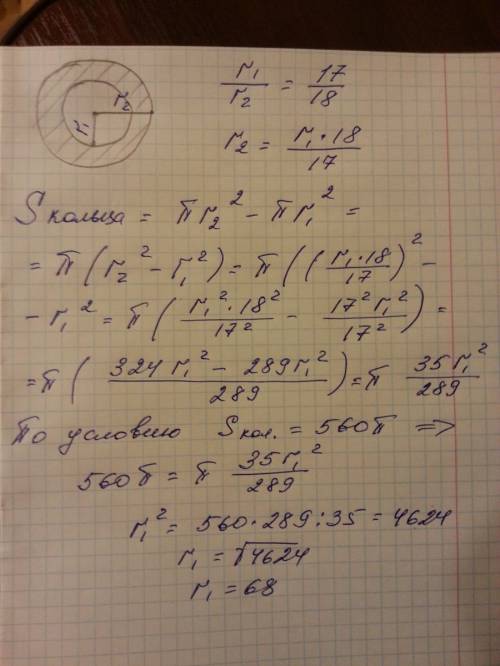 r₂
r₁
r₁/r₂ = 17/18
r₂ = r₁·18/17
S кольца = πr₂² − πr₁² =
= π(r₂² − r₁²) = π((r₁·18/17)² −
− r₁² = π(r₁²·18²/17² − 17²r₁²/17²) =
= π(324r₁² − 289r₁²/289) = π 35r₁²/289
По условию S кол. = 560π ⇒
560π = π 35r₁²/289
r₁² = 560·289:35 = 4624
r₁ = √4624
r₁ = 68